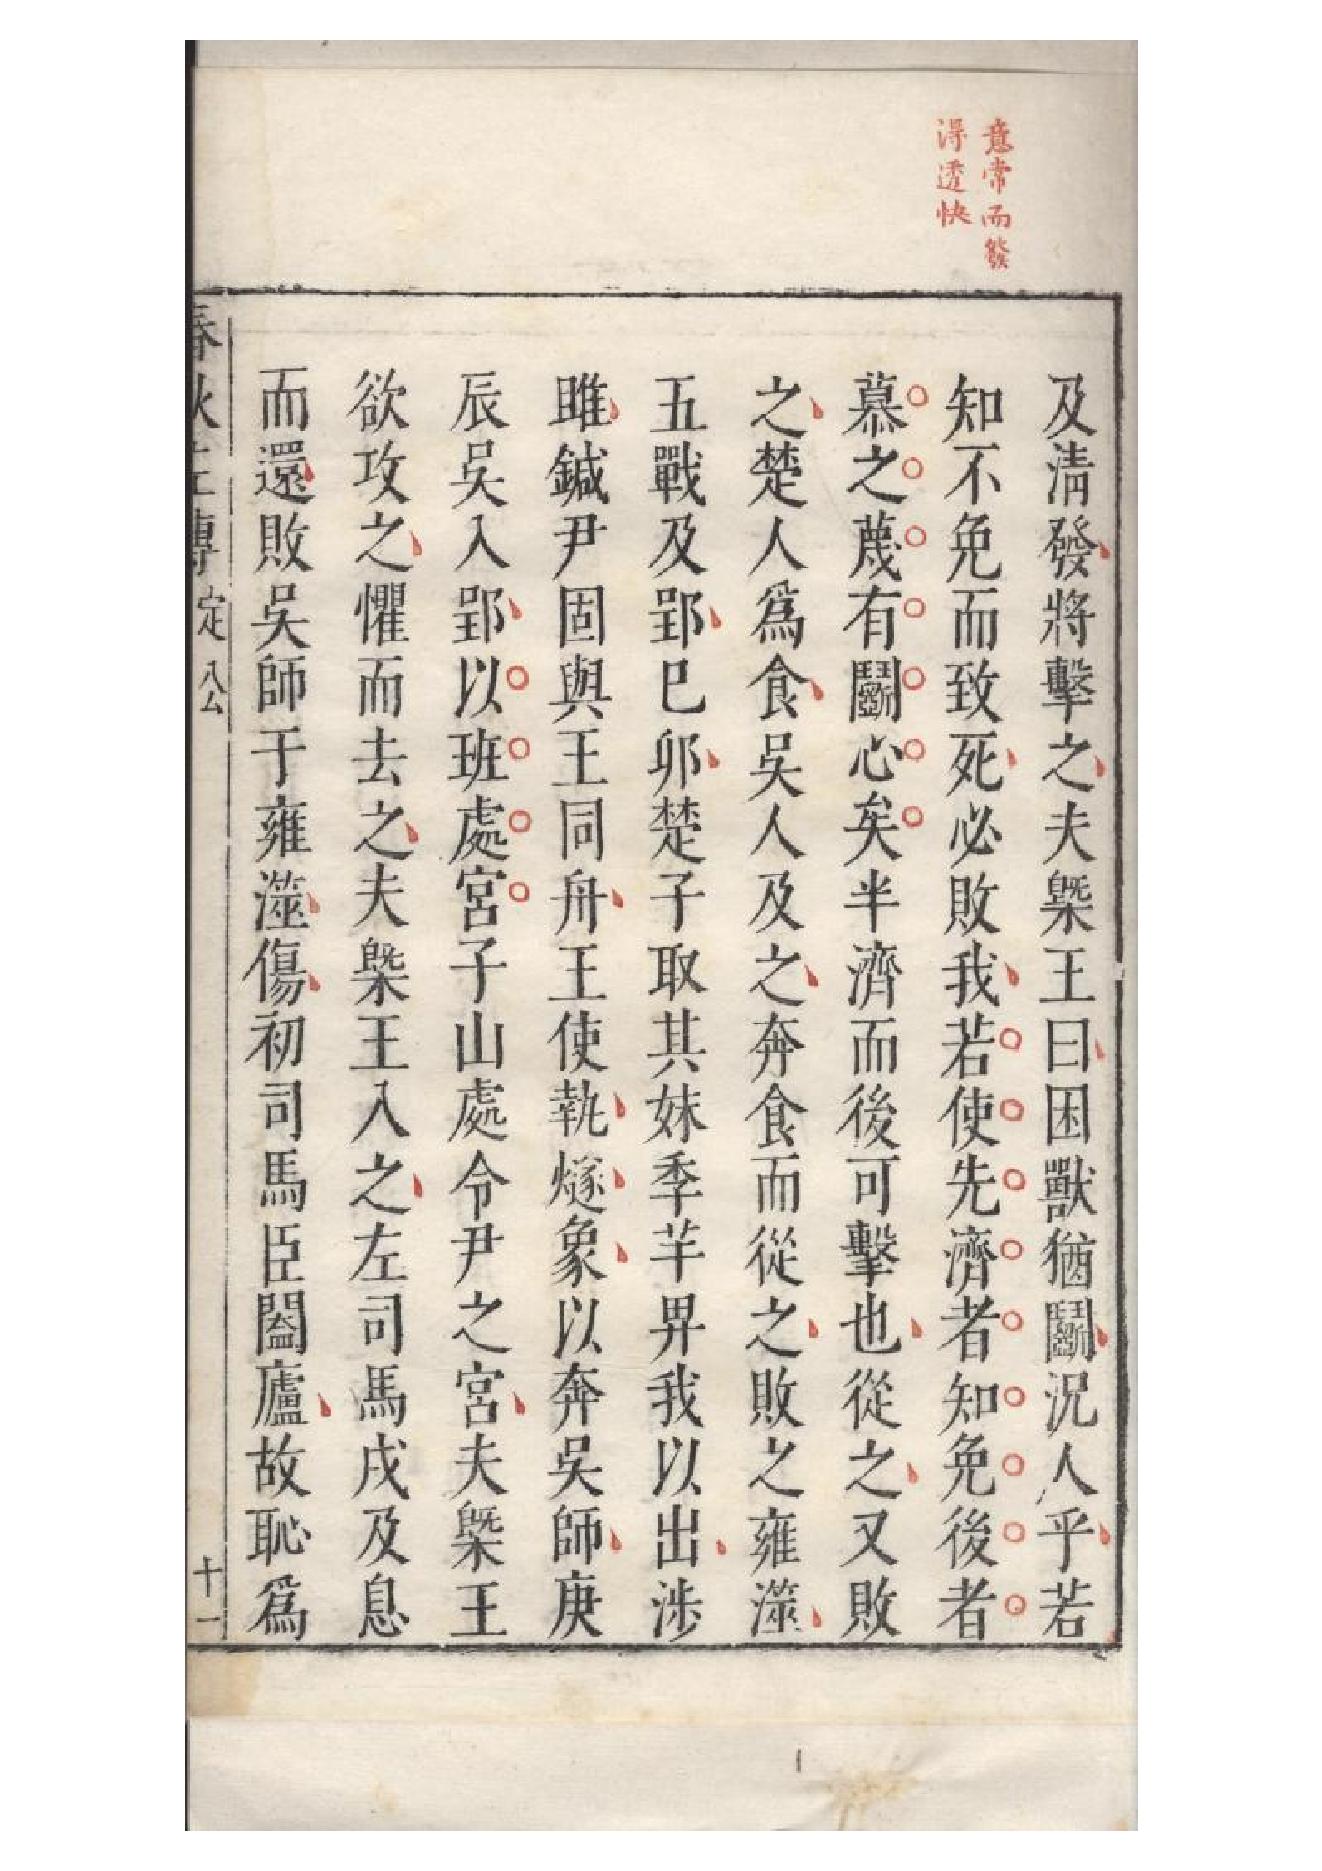 意常而發
得透快
及清發將擊之夫槩王曰困獸猶鬬況人乎若
知不免而致死必敗我若使先濟者知免後者
慕之蔑有鬬心矣半濟而後可擊也從之又敗
之楚人爲食吳人及之奔食而從之敗之雍澨
五戰及郢巳卯楚子取其妹季芊畀我以出涉
雎鍼尹固與王同舟王使執燧象以奔吳師庚
辰吳入郢以班處宮子山處令尹之宮夫槩王
欲攻之懼而去之夫槩王入之左司馬戌及息
而還敗吳師于雍澨傷初司馬臣闔廬故恥爲
春秋左傳 定公 十一